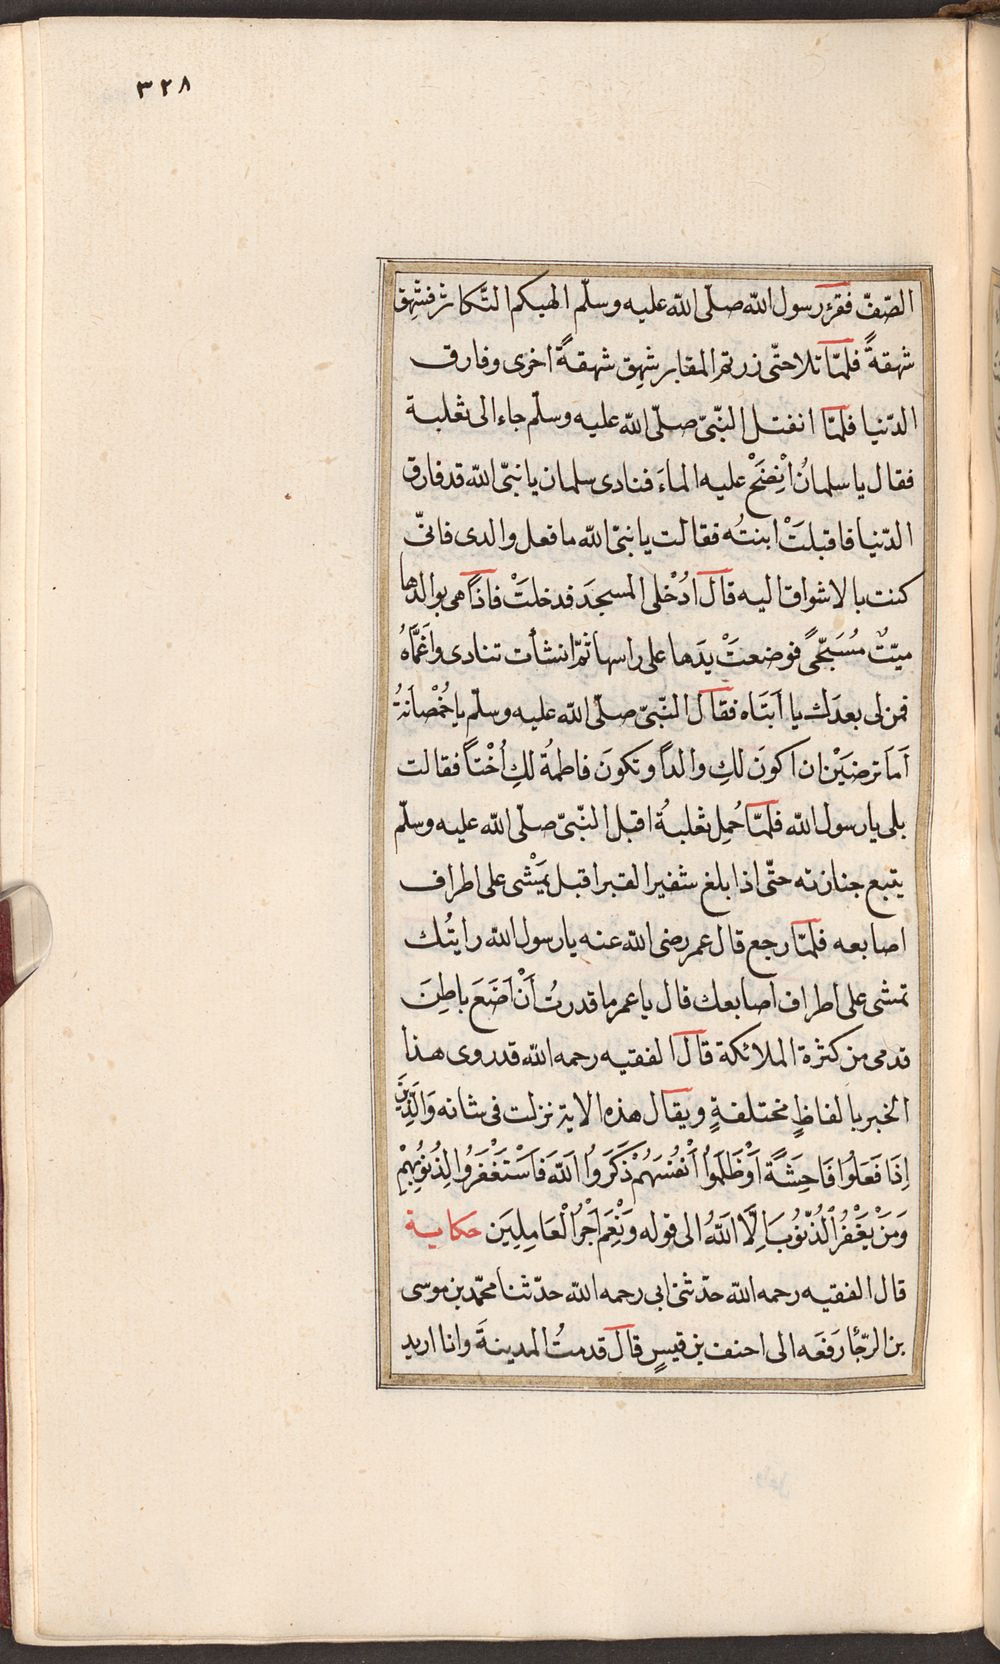 ٣٢٨
الصّفّ فقرء رسول اللّه صلّى اللّه عليه وسلّم الهيكم التّكاثر فشهق
شهقةً فلمّا تلا حتّى زرتم المقابر شهق شهقةً اخرى وفارق
الدّنيا فلمّا انفتل النّبىّ صلّى اللّه عليه وسلّم جاء الى ثعلبة
فقال يا سلمانُ اِنْضَحْ عليه الماءَ فنادى سلمان يا نبىّ اللّه قد فارق
الدّنيا فاقبلَتْ ابنتُه فقالت يا نبىّ اللّه ما فعل والدى فانّى
كنت بالاشواق اليه قال ادْخُلى المسجدَ فدخلَتْ فاذا هى بوالدها
ميّتٌ مُسَجّىً فوضعتْ يدَها على راسها ثمّ انشأت تنادى واغَمَّاهُ
فمن لى بعدك يا اَبَتَاه فقال النّبىّ صلّى اللّه عليه وسلّم يا خُمْصَانَةُ
اَمَا ترضَيْن ان اكونَ لكِ والداً وتكونَ فاطمةُ لكِ اُخْتاً فقالت
بلى يا رسول اللّه فلمّا حُمِل ثعلبةُ اقبل النّبىّ صلّى اللّه عليه وسلّم
يتبع جنازته حتّى اذا بلغ شفير القبر اقبل يَمْشى على اطراف
اصابعه فلمّا رجع قال عمر رضى اللّه عنه يا رسول اللّه رايتُك
تمشى على اطراف اصابعك قال يا عمر ما قدرتُ اَنْ اَضَعَ باطِنَ
قدمى من كثرة الملائكة قال الفقيه رحمه اللّه قد روى هذا
الخبر بالفاظٍ مختلفةٍ ويقال هذه الاية نزلت فى شانه وَالَّذِينَ
اِذَا فَعَلُوا فَاحِشَةً اَوْ ظَلَمُوا اَنْفُسَهُمْ ذَكَرُوا اللّهَ فَاسْتَغْفَرُوا لِذُنُوبِهِمْ
وَمَنْ يَغْفِرُ الذُّنُوبَ اِلَّا اللّهُ الى قوله وَنِعْمَ اَجْرُ الْعَامِلِينَ حكاية
قال الفقيه رحمه اللّه حدّثنى ابى رحمه اللّه حدّثنا محمّد بن موسى
بن الرّجا رَفَعَه الى احنف بن قيسٍ قال قدمتُ المدينةَ وانا اريد